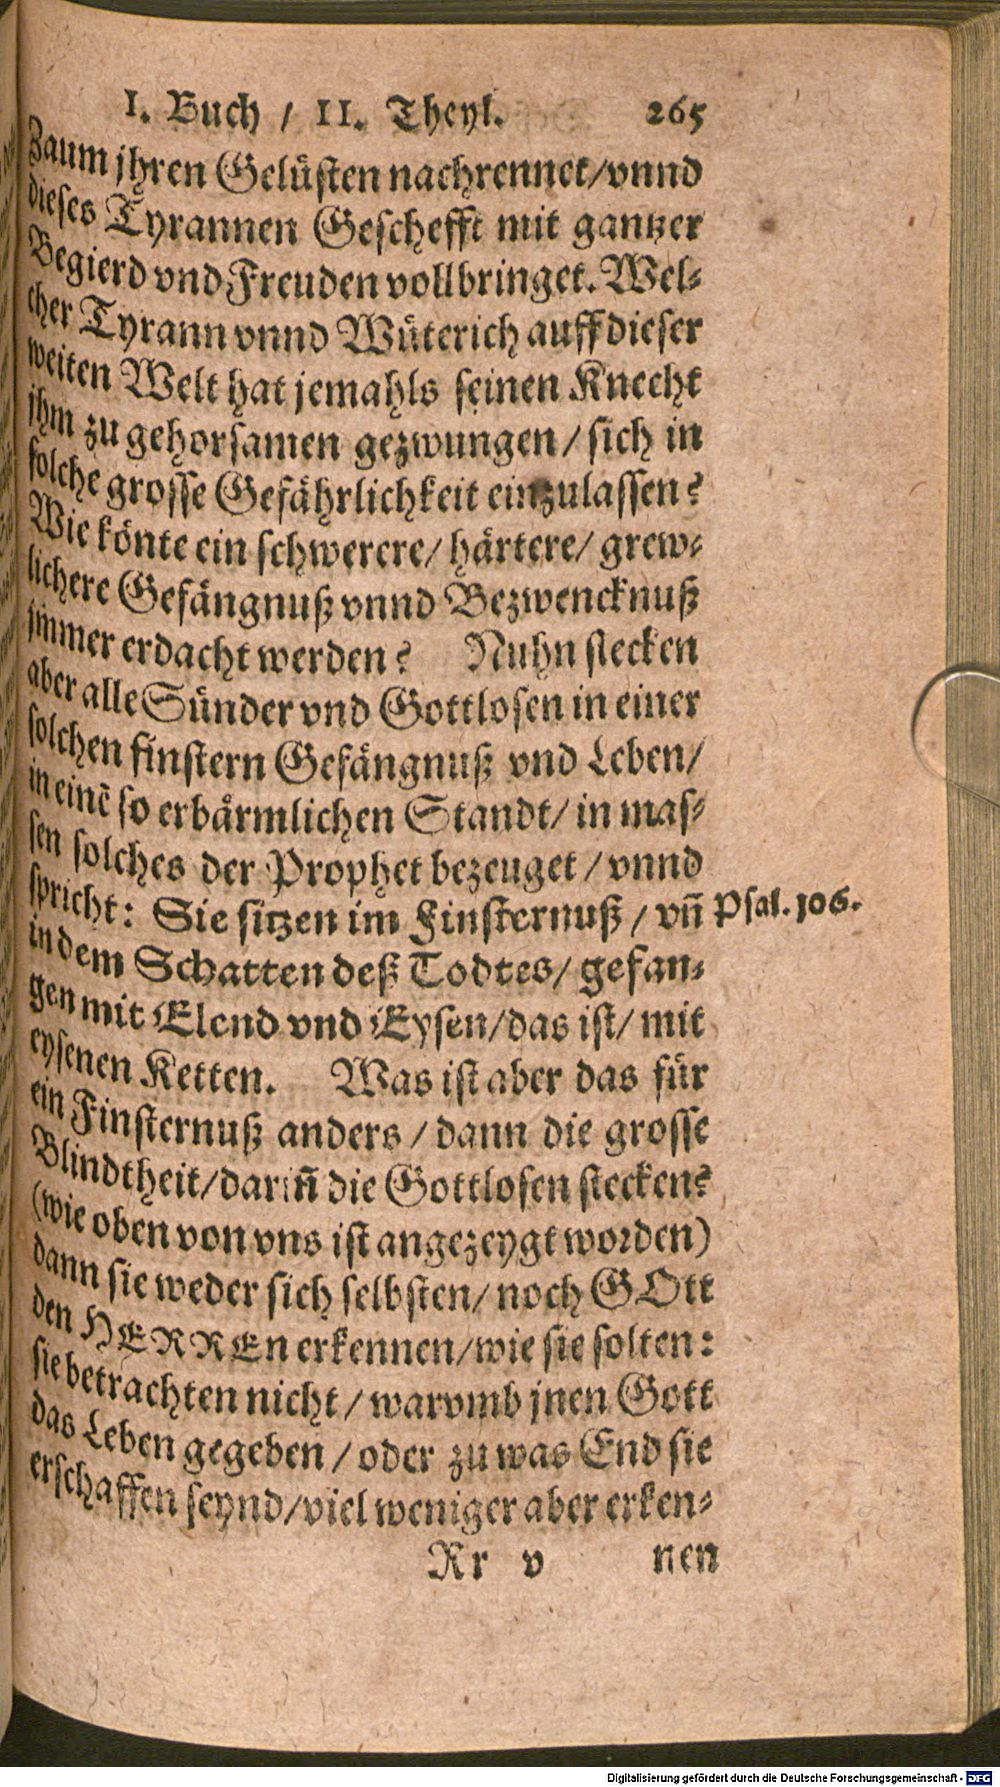 I. Buch / II. Theyl. 265
Zaum jhren Gelüsten nachrennet/vnnd
dieses Tyrannen Geschefft mit gantzer
Begierd vnd Freuden vollbringet. Wel-
cher Tyrann vnnd Wüterich auff dieser
weiten Welt hat jemahls seinen Knecht
jhm zu gehorsamen gezwungen/ sich in
solche grosse Gefährlichkeit einzulassen?
Wie könte ein schwerere/ härtere/ grew-
lichere Gefängnuß vnnd Bezwencknuß
jmmer erdacht werden? Nuhn stecken
aber alle Sünder vnd Gottlosen in einer
solchen finstern Gefängnuß vnd Leben/
in einē so erbärmlichen Standt/ in mas-
sen solches der Prophet bezeuget / vnnd
spricht: Sie sitzen im Finsternuß / vn̄ Psal. 106.
in dem Schatten deß Todtes/ gefan-
gen mit Elend vnd Eysen/das ist/ mit
eysenen Ketten. Was ist aber das für
ein Finsternuß anders / dann die grosse
Blindtheit/darin̄ die Gottlosen stecken?
(wie oben von vns ist angezeygt worden)
dann sie weder sich selbsten/ noch GOtt
den HERREn erkennen/wie sie solten:
sie betrachten nicht / warvmb jnen Gott
das Leben gegeben / oder zu was End sie
erschaffen seynd/viel weniger aber erken-
Rr v nen
Digitalisierung gefördert durch die Deutsche Forschungsgemeinschaft - DFG